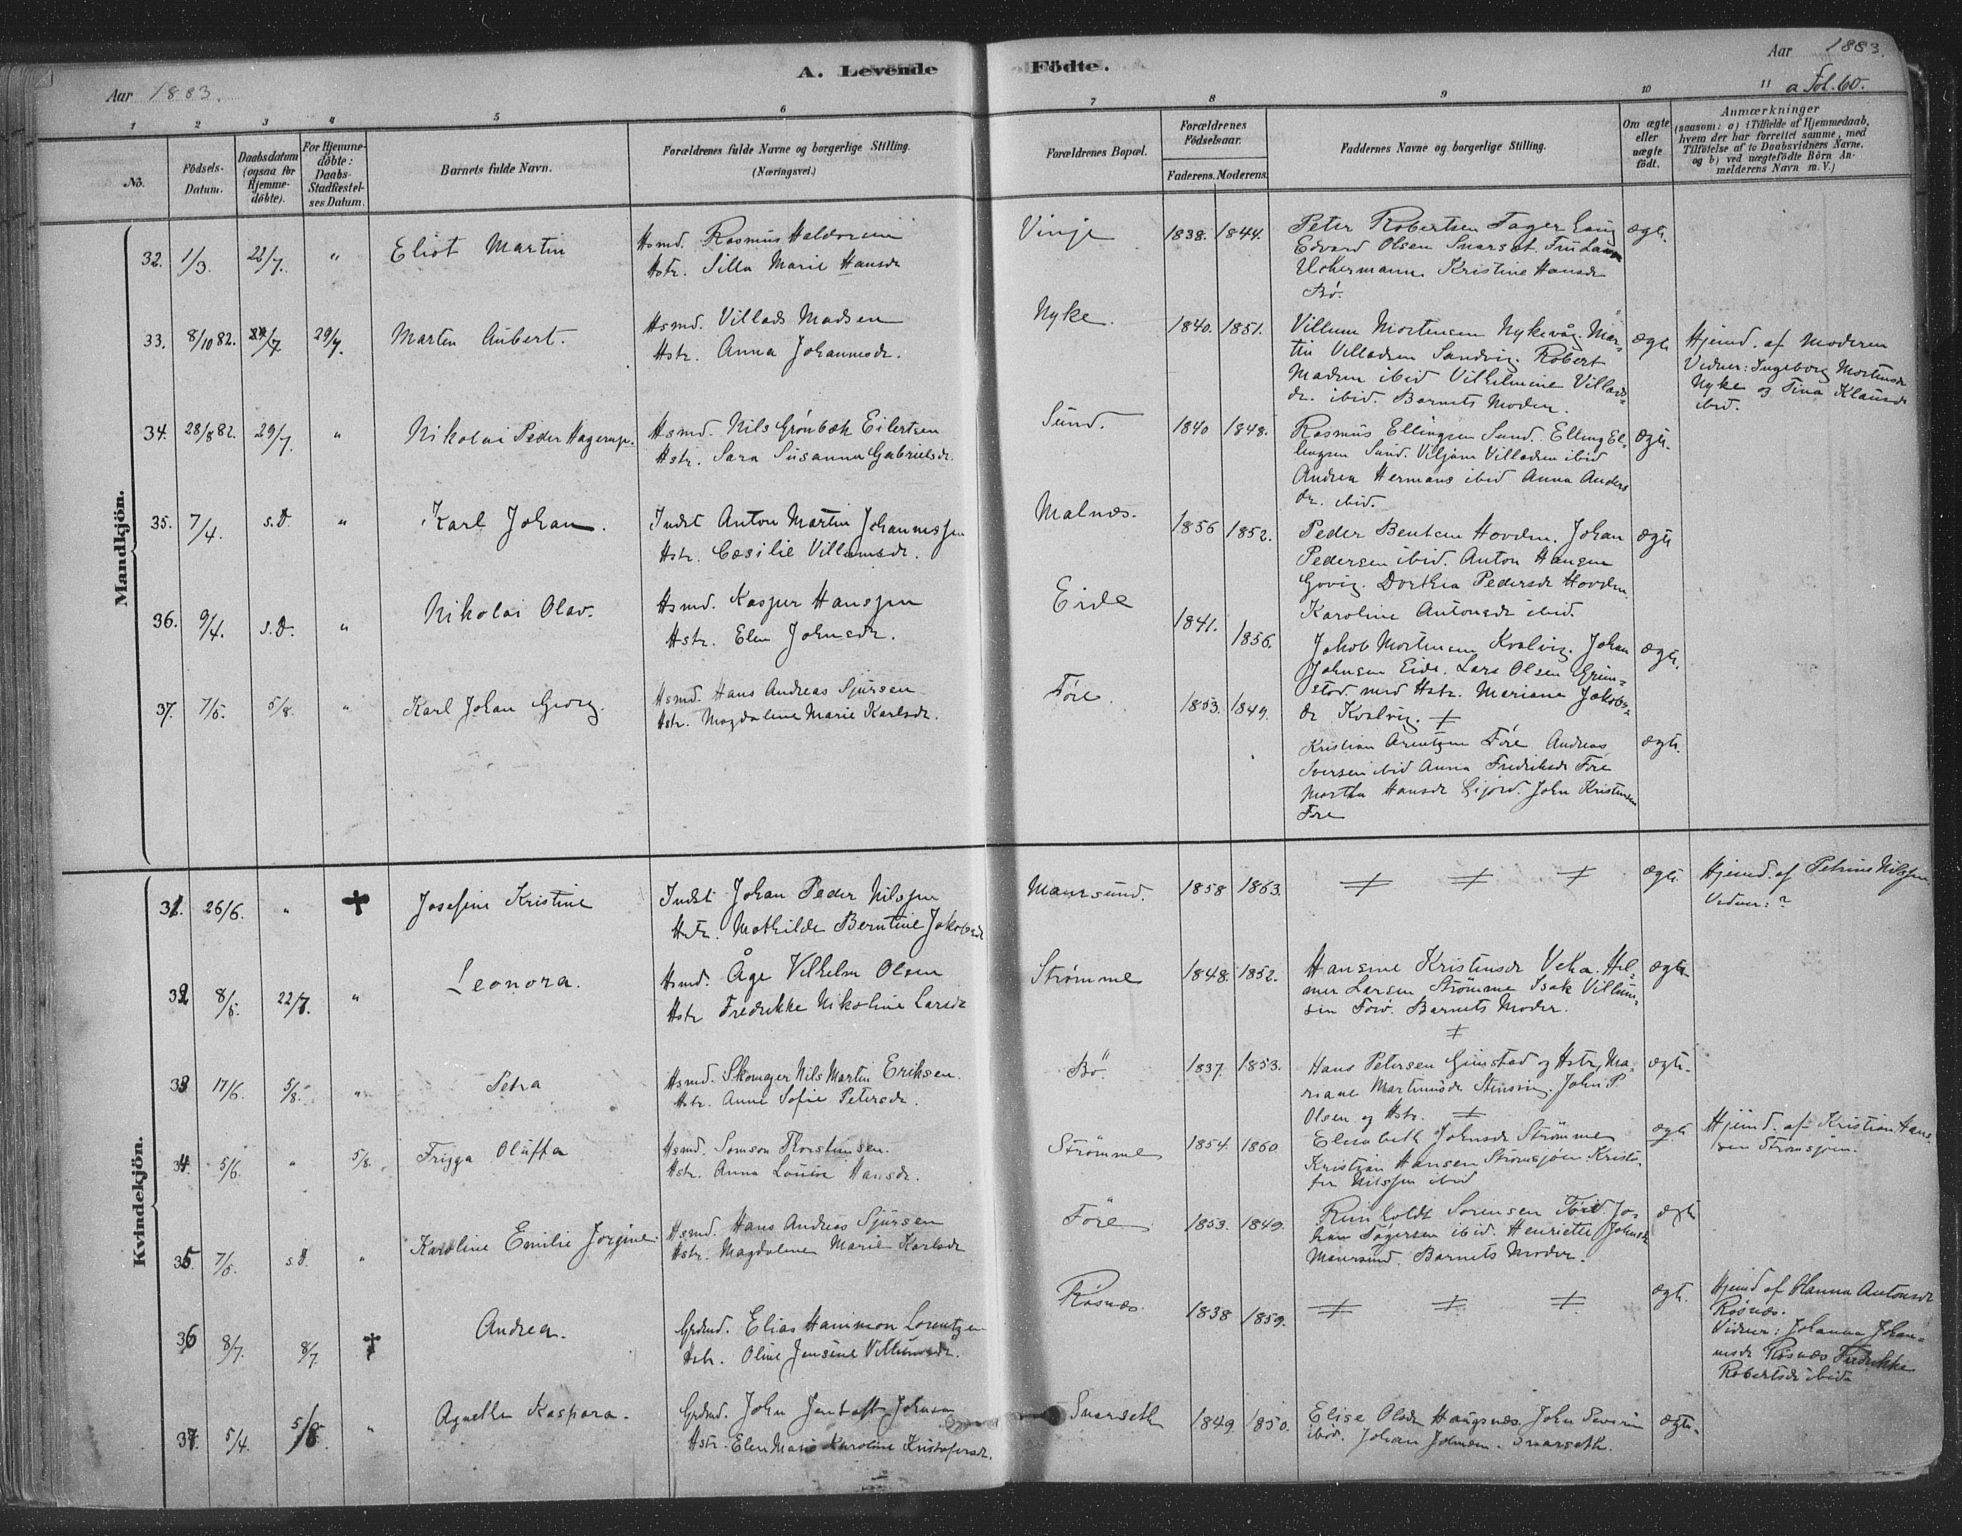 Aar 1883.
A. Levende Födte.
Aar 1883.
a Fol. 60.
1 2 3 4 5 6 7 8 9 10 11
No.
Födsels-
Datum.
Daabsdatum
(ogsaa for
Hjemme-
döbte).
For Hjemme-
döbte:
Daabs-
Stadfæstel-
ses Datum.
Barnets fulde Navn.
Forældrenes fulde Navne og borgerlige Stilling.
(Næringsvei.)
Forældrenes Bopæl.
Forældrenes
Födselsaar.
Faderens. Moderens.
Faddernes Navne og borgerlige Stilling.
Om ægte
eller
uægte
födt.
Anmærkninger
(saasom: a) i Tilfælde af Hjemmedaab,
hvem der har forrettet samme, med
Tilföielse af to Daabsvidners Navne.
og b) ved uægtefödte Börn An-
melderens Navn m. V.)
Mandkjön.
32. 1/3. 22/7. " Eliot Martin
Hsmd. Rasmus
Hstr. Silla Marie Hansdr
Vinje 1838. 1844.
Peter Robertsen
Edvard Olsen Snarset. Fru
Uchermann. Kristine Hansdr
Bö.
ægte.
33. 8/10 82. 24/7 29/7. Marten Aubert.
Hsmd. Villads Madsen
Hstr. Anna Johannesdr.
Nyke. 1840. 1851.
Villum Mortensen Nykevåg. Mar-
tin Villadsen Sandvig. Robert
Madsen ibid Vilhelmine Villads-
dr. ibid. Barnets Moder.
ægte
Hjemd. af Moderen
Vidner: Ingeborg Mortensdr
Nyke og Tina Klausdr
ibid.
34. 28/8 82. 29/7. " Nikolai Peder Hagerup.
Hsmd. Nils Grönbæk Eilertsen
Hstr. Sara Susanna Gabrielsdr.
Sund. 1840 1848.
Rasmus Ellingsen Sund. Elling El-
lingsen Sund. Viljam Villadsen ibid
Andrea Hermans ibid Anna Anders
dr. ibid.
ægte.
35. 7/4. s.D. " Karl Johan.
Indst Anton Martin Johannessen
Hstr. Cæsilie Villumsdr.
Malnæs. 1856 1852.
Peder Bentsen Hovden. Johan
Pedersen ibid. Anton Hansen
Dorthea Pedersdr Hovden.
Karoline Antonsdr ibid.
ægte
36. 9/4. s.D. " Nikolai Olav.
Hsmd. Kasper Hanssen
Hstr. Elen Johnsdr.
Eide 1841. 1856.
Jakob Mortensen Kvalvig. Johan
Johnsen Eide. Lars Olsen Grim-
stad. med Hstr. Mariane Jakobs-
dr Kvalvig. ≠
ægte.
37. 7/5. 5/8. " Karl Johan Georg.
Hsmd. Hans Andreas Sjursen
Hstr. Magdaline Marie Karlsdr.
Före. 1853. 1849.
Kristian Arentzen Före Andreas
Iversen ibid Anna Fredriksdr Före
Martha Hansdr Gjord. John Kristensen
Före
ægte.
Kvindekjön.
31. 26/6. " ✝ Josefine Kristine
Indst Johan Peder Nilssen
Hstr. Mathilde Berntine Jakobsdr
Maursund. 1858 1863.
≠ ≠ ≠ ægte.
Hjemd. af Petrine Nilssen.
Vidner: ?
32 8/5. 22/7. " Leonora.
Hsmd. Åge Vilhelm Olsen
Hstr Fredrikke Nikoline Larsdr
Strömme 1848. 1852.
Hansine Kristensdr Veka. Hil-
mer Larsen Strömme Isak Villum-
sen Barnets Moder.
≠
ægte.
33 17/6. 5/8. " Petra
Hsmd. Skomager Nils Martin Eriksen.
Hstr. Anne Sofie Petersdr.
Bö. 1837. 1853.
Hans Petersen Gimstad og Hstr. Ma-
riane Martinusdr John P.
Olsen og Hstr. ≠
ægte.
34 5/6. " 5/8. Frigga Oluffa
Hsmd. Samson Thorstensen.
Hstr. Anna Lovise Hansdr.
Strömme 1854. 1860
Elisabeth Johnsdr Strömme
Kristian Hansen Strömsjöen. Kristo-
fer Nilssen ibid
ægte
Hjemd. af Kristian Han-
sen Strömsjöen.
35 7/5. s.D. " Karoline Emilie Jörgine.
Hsmd. Hans Andreas Sjursen
Hstr. Magdaline Marie Karlsdr
Före 1853. 1849.
Reinholdt Sörensen Jo-
han ibid. Henriette Johnsdr
Maursund. Barnets Moder.
ægte
36 8/7. 8/7. ✝ Andrea.
Grdmd. Elias Hammon Lorentzen
Hstr. Oline Jensine Villumsdr.
Rösnæs. 1838 1859.
≠ ≠ ≠ ægte.
Hjemd af Hanna Antonsdr
Rösnæs.
Vidner: Johanna Johan-
nesdr Rösnæs Fredrikke
Robertsdr ibid
37. 5/4. 5/8. " Agnethe Kaspara.
Grdmd. John Jentoft Johnsen
Hstr. Elen Marie Karoline Kristofersdr.
Snarseth 1849. 1850.
Elise Olsdr Haugsnæs. John Severin
ibid. Johan Johnsen. Snarseth.
ægte.